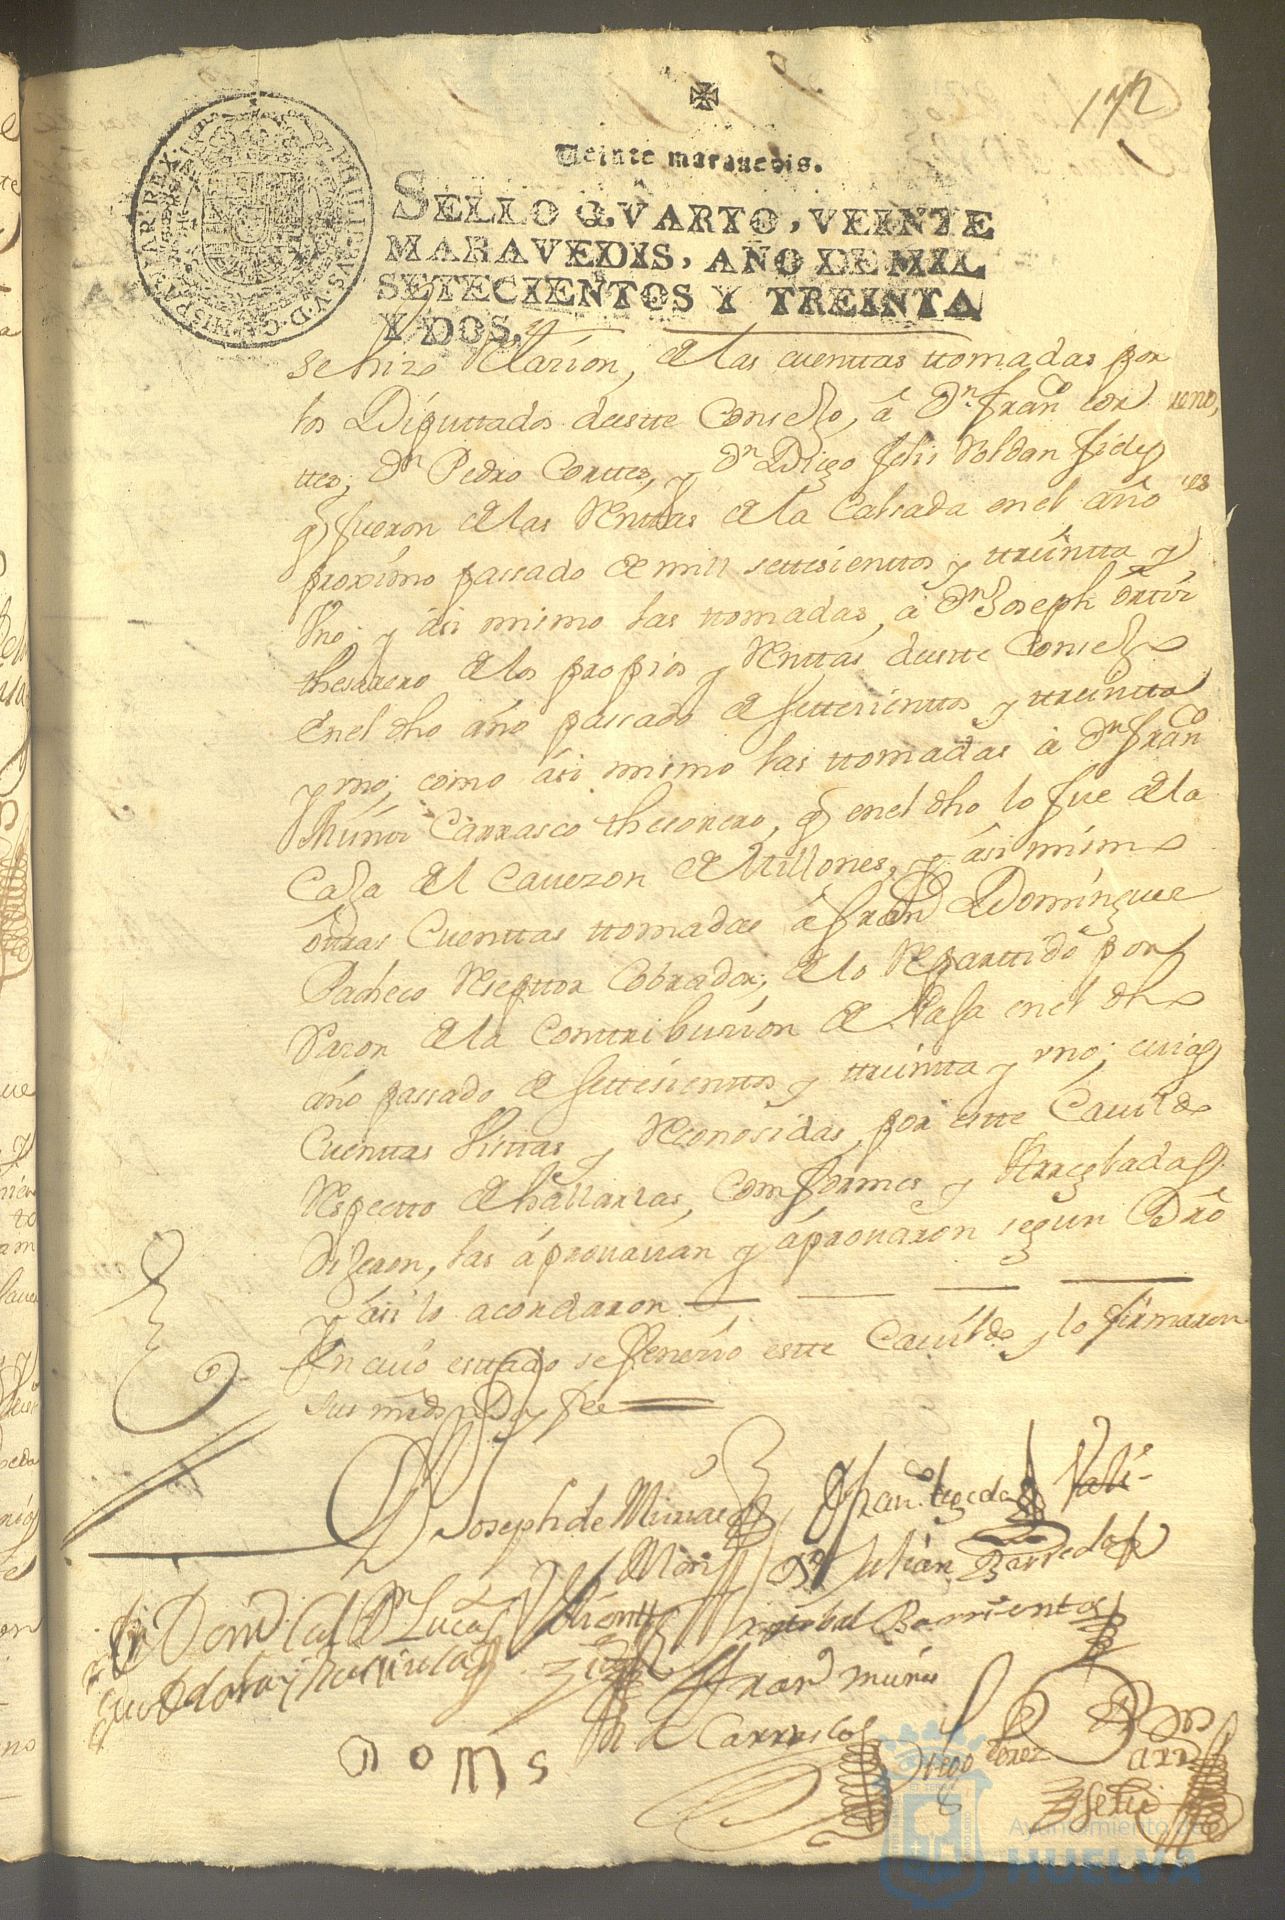 172
Veinte maravedis.
SELLO QVARTO, VEINTE
MARAVEDIS, AÑO DE MIL
SETECIENTOS Y TREINTA
Y DOS.
PHILIPPVS V D G HISPANIAR REX
se hizo Relazion, de las cuenttas ttomadas por
los Diputtados deestte Conzejo, â Dn. Franco. Cor
ttes, Dn Pedro Corttes, y Dn Diego felis Roldan fieles
q fueron de las Renttas de la Calsada en el año
proximo passado de mill settesienttos y ttreintta y
Vno; y asi mimo las ttomadas, a Dn Joseph Orttiz
thesorero de los propios y Renttas deestte Consejo
En el dho año passado de settesienttos y ttreintta
y vno; como ási mimo las ttomadas â Dn Franco
Muñoz Carrasco thesorero, q en el dho lo fue de la
Caja del Cavezon de Millones, y ási mimo
óttras Cuenttas ttomadas â Franco Domingues
Pacheco Reseptor Cobrador, de lo Reparttido por
Razon de la Conttribuzion de Paja en el dho
año passado de settesienttos y ttreintta y vno; cuias
Cuenttas Visttas y Reconosidas por estte Cavildo
Respectto de hallarlas, Comformes y Arregladas
Dijeron, las áprovavan y áprovaron segun Dro
y ási lo acordaron
En cuio esttado se fenezio estte Cavildo y lo firmaron
sus mrds Doy fee
Joseph de
Dn Julian Barreda
Dn Lucas
Cristobal Barrientos
Fran muñoz
Carrasco
Diego
Ayuntamiento de
HUELVA